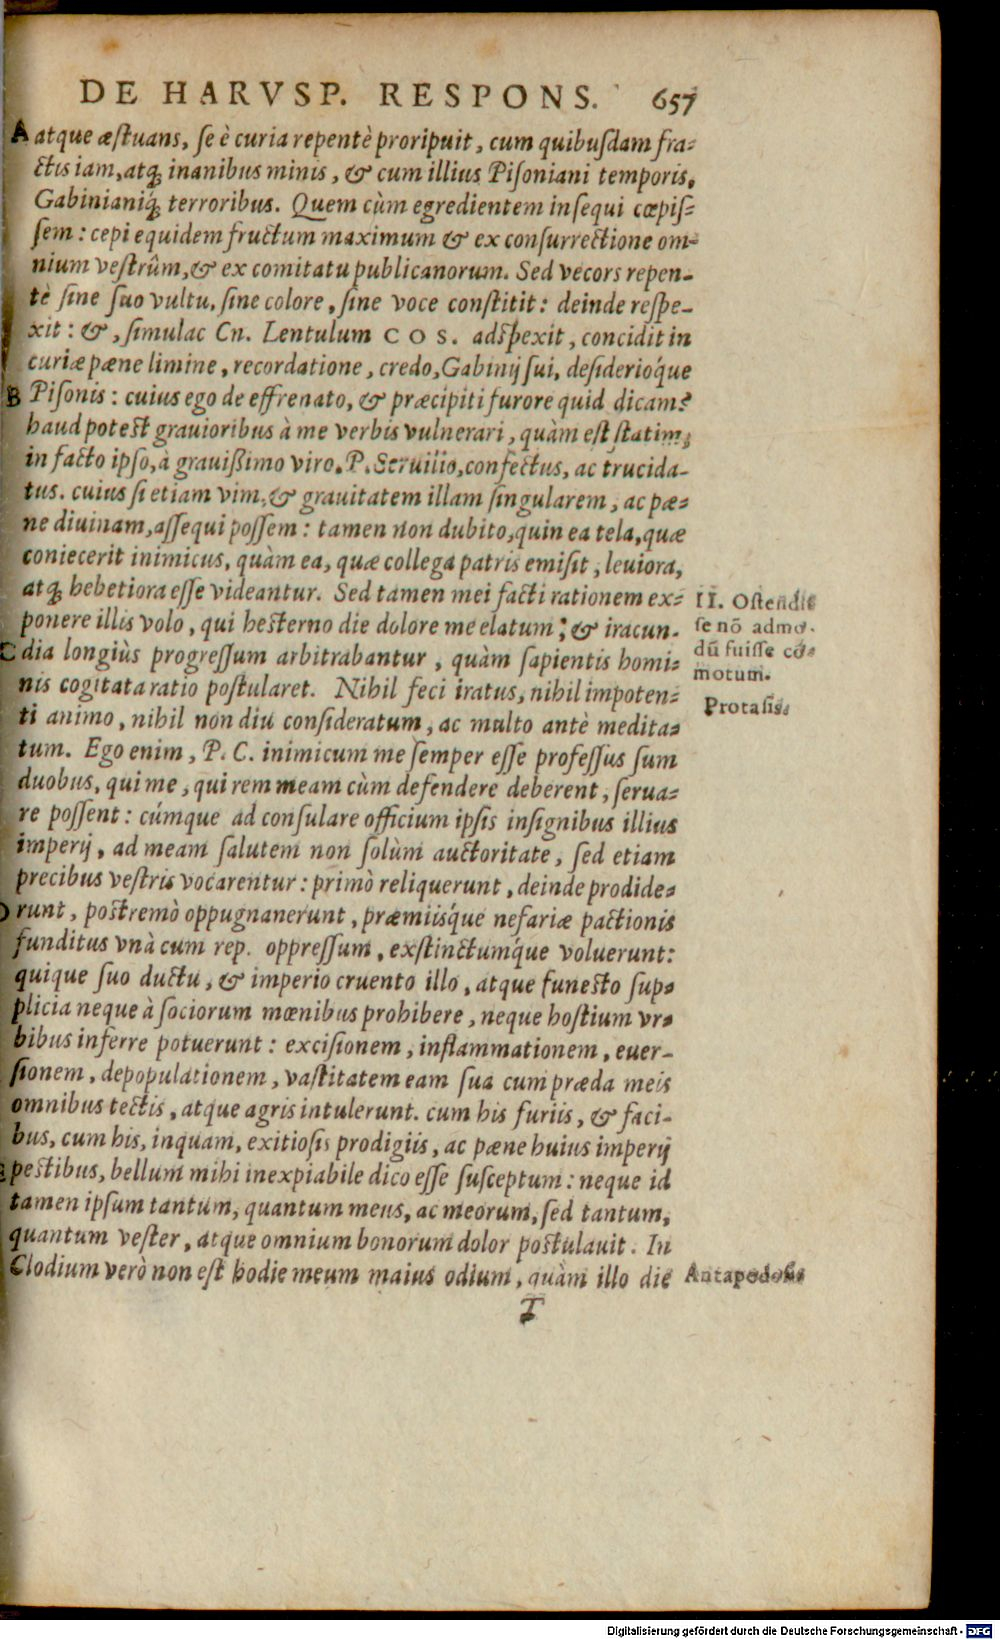 DE HARVSP. RESPONS. 657
A atque æſtuans, ſe è curia repentè proripuit, cum quibuſdam fra-
ctis iam, atq; inanibus minis, & cum illius Piſoniani temporis,
Gabinianiq́; terroribus. Quem cùm egredientem inſequi cœpiſ-
ſem: cepi equidem fructum maximum & ex conſurrectione om-
nium veſtrûm, & ex comitatu publicanorum. Sed vecors repen-
tè ſine ſuo vultu, ſine colore, ſine voce conſtitit: deinde reſpe-
xit: &, ſimulac Cn. Lentulum COS. adſpexit, concidit in
curiæ pæne limine, recordatione, credo, Gabinij ſui, deſiderioq́ue
B Piſonis: cuius ego de effrenato, & præcipiti furore quid dicam?
haud poteſt grauioribus à me verbis vulnerari, quàm eſt ſtatim,
in facto ipſo, à grauißimo viro, P. Seruilio, confectus, ac trucida-
tus. cuius ſi etiam vim, & grauitatem illam ſingularem, ac pæ-
ne diuinam, aſſequi poſſem: tamen non dubito, quin ea tela, quæ
coniecerit inimicus, quàm ea, quæ collega patris emiſit, leuiora,
atq; hebetiora eſſe videantur. Sed tamen mei facti rationem ex-
ponere illis volo, qui heſterno die dolore me elatum; & iracun-
C dia longiùs progreſſum arbitrabantur, quàm ſapientis homi-
nis cogitata ratio poſtularet. Nihil feci iratus, nihil impoten-
ti animo, nihil non diu conſideratum, ac multo antè medita-
tum. Ego enim, P. C. inimicum me ſemper eſſe profeſſus ſum
duobus, qui me, qui rem meam cùm defendere deberent, ſerua-
re poſſent: cúmque ad conſulare officium ipſis inſignibus illius
imperij, ad meam ſalutem non ſolùm auctoritate, ſed etiam
precibus veſtris vocarentur: primò reliquerunt, deinde prodide-
D runt, poſtremò oppugnanerunt, præmiisq́ue nefariæ pactionis
funditus vnà cum rep. oppreſſum, exſtinctumq́ue voluerunt:
quique ſuo ductu, & imperio cruento illo, atque funeſto ſup-
plicia neque à ſociorum mœnibus prohibere, neque hoſtium vr-
bibus inferre potuerunt: exciſionem, inflammationem, euer-
ſionem, depopulationem, vaſtitatem eam ſua cum præda meis
omnibus tectis, atque agris intulerunt. cum his furiis, & faci-
bus, cum his, inquam, exitioſis prodigiis, ac pæne huius imperij
E peſtibus, bellum mihi inexpiabile dico eſſe ſusceptum: neque id
tamen ipſum tantum, quantum meus, ac meorum, ſed tantum,
quantum veſter, atque omnium bonorum dolor poſtulauit. In
Clodium verò non eſt hodie meum maius odium, quàm illo die
T
II. Oſtendit
ſe nō admo-
dū fuiſſe cō-
motum.
Protaſis.
Antapodoſis
Digitalisierung gefördert durch die Deutsche Forschungsgemeinschaft - DFG